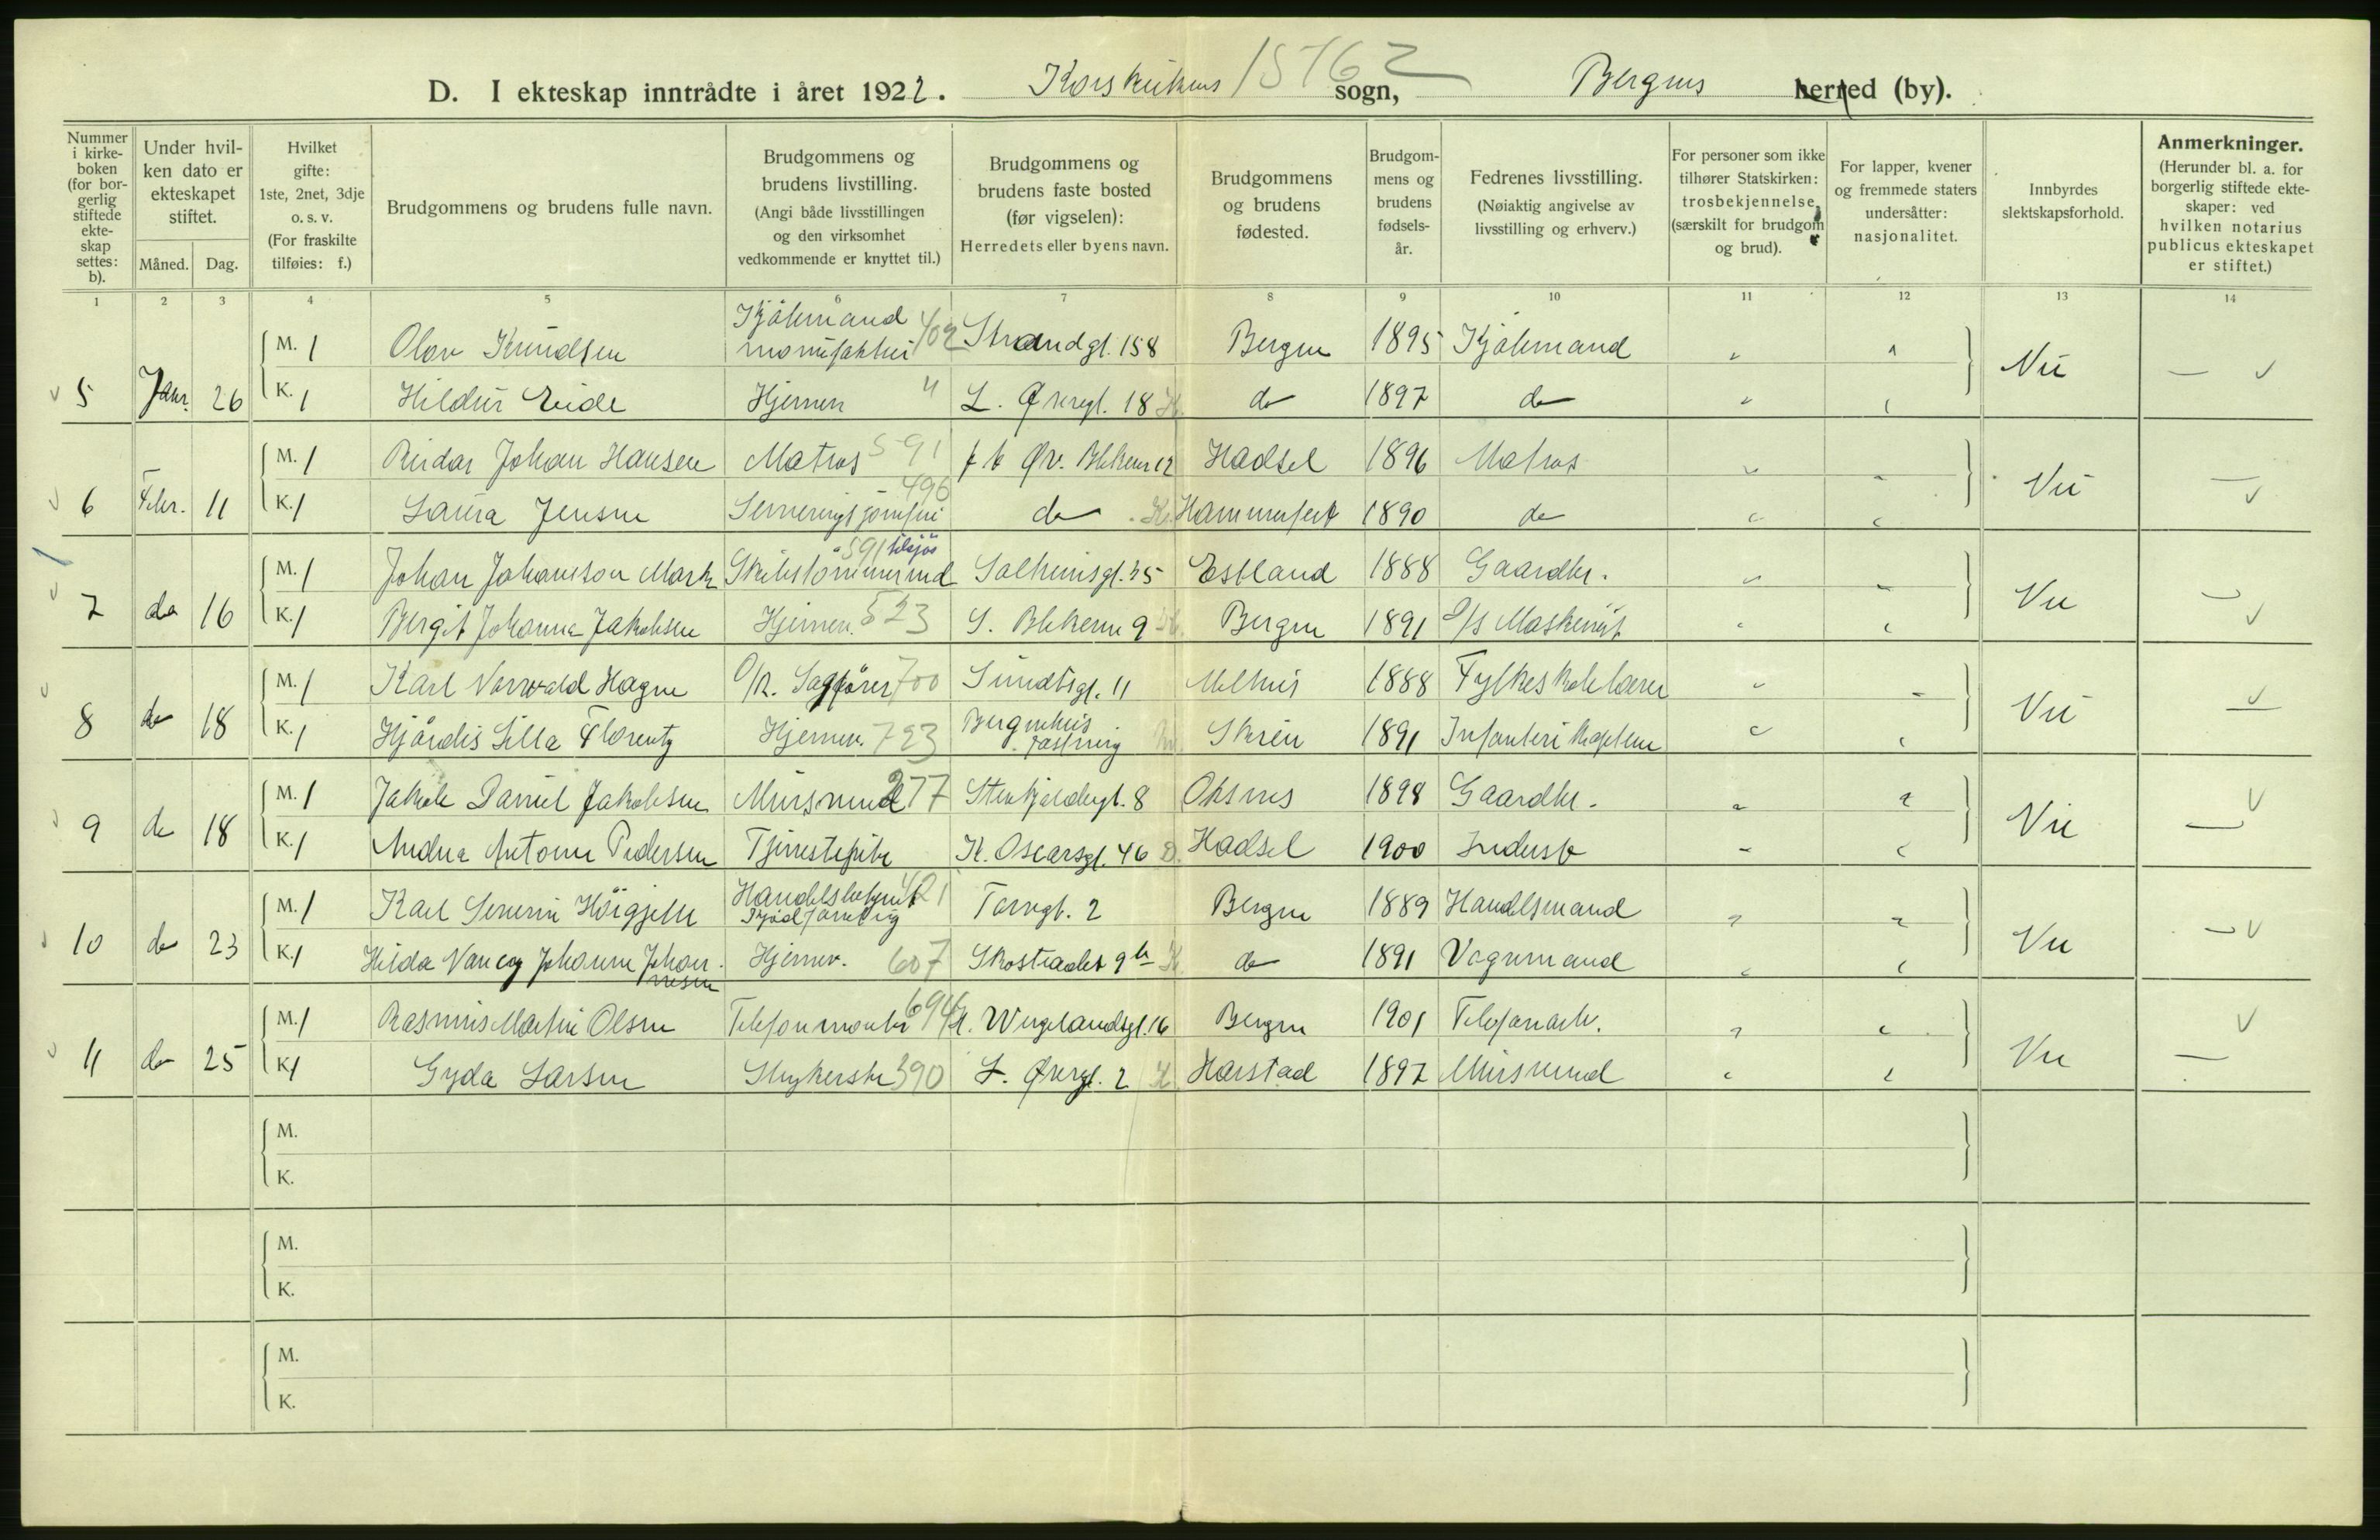 D. I ekteskap inntrådte i året 1922. Korskirkens 15762 sogn, Bergens herred (by).
Nummer i kirke-boken (for bor-gerlig stiftede ekte-skap settes: b).
Under hvil-ken dato er ekteskapet stiftet.
Måned. Dag.
Hvilket gifte: 1ste, 2net, 3dje o. s. v. (For fraskilte tilføies: f.)
Brudgommens og brudens fulle navn.
Brudgommens og brudens livstilling. (Angi både livsstillingen og den virksomhet vedkommende er knyttet til.)
Brudgommens og brudens faste bosted (før vigselen): Herredets eller byens navn.
Brudgommens og brudens fødested.
Brudgom-mens og brudens fødsels-år.
Fedrenes livsstilling. (Nøiaktig angivelse av livsstilling og erhverv.)
For personer som ikke tilhører Statskirken: trosbekjennelse (særskilt for brudgom og brud).
For lapper, kvener og fremmede staters undersåtter: nasjonalitet.
Innbyrdes slektskapsforhold.
Anmerkninger. (Herunder bl. a. for borgerlig stiftede ekte-skaper: ved hvilken notarius publicus ekteskapet er stiftet.)
1 2 3 4 5 6 7 8 9 10 11 12 13 14
M. 1 Olav Knudsen Kjøbmand manufaktur 402 Strandgt. 158 Bergen 1895 Kjøbmand
5 Janr. 26 K. 1 Hildur Eide Hjemme " L. Øvregt. 18 do 1897 do
M. 1 Reidar Johan Hansen Matros 591 Øv. Blekevei 12 Hadsel 1896 Matros
6 Febr. 11 K. 1 Laura Jensen Serveringsjomfru 496 do Hammerfest 1890 do
M. 1 Johan Johanson Mark Skibstømmermd 591 tilsjøs Solheimsgt. 35 Estland 1888 Gaardbr.
7 do 16 K. 1 Bergit Johanna Jakobsen Hjemme. 523 S. Blekevei 9 Bergen 1891 D/S Maskinist
M. 1 Karl Norvald Hagen O/R. Sagfører 700 Sundtsgt. 11 Melhus 1888 Fylkesskolelærer
8 do 18 K. 1 Hjørdis Lilla Florentz Hjemme. 723 Bergenhus fæstning Skien 1891 Infanteri kaptein
M. 1 Jakob Daniel Jakobsen Mursvend 277 Stenkjeldergt. 8 Øksnes 1898 Gaardbr.
9 do 18 K. 1 Andrea Antonie Pedersen Tjenestepike K. Oscarsgt. 46 Hadsel 1900 Inderst
M. 1 Karl Severin Handelsbetjent 421 Kjødforretnig Torvgt. 2 Bergen 1889 Handelsmand
10 do 23 K. 1 Hilda Nancy Johanne Johannesen Hjemv. 607 Skostrædet 9b do 1891 Vognmand
M. 1 Rasmus Martin Olsen Telefonmontør 694 H. Wergelandsgt. 16 Bergen 1901 Telefonarb.
11 do 25 K. 1 Gyda Larsen Strykerske 390 L. Øvregt. 2 Harstad 1897 Mursvend
M.
K.
M.
K.
M.
K.